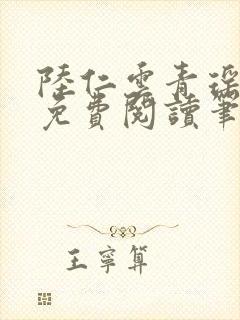 陸仁雲青瑤
免費閱讀筆
王寧算